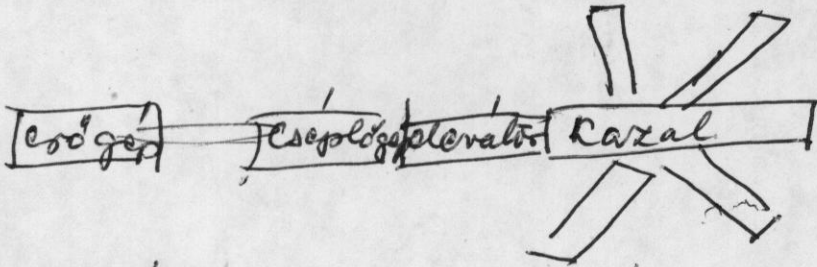 erőgép cséplőgép elevátor Kazal